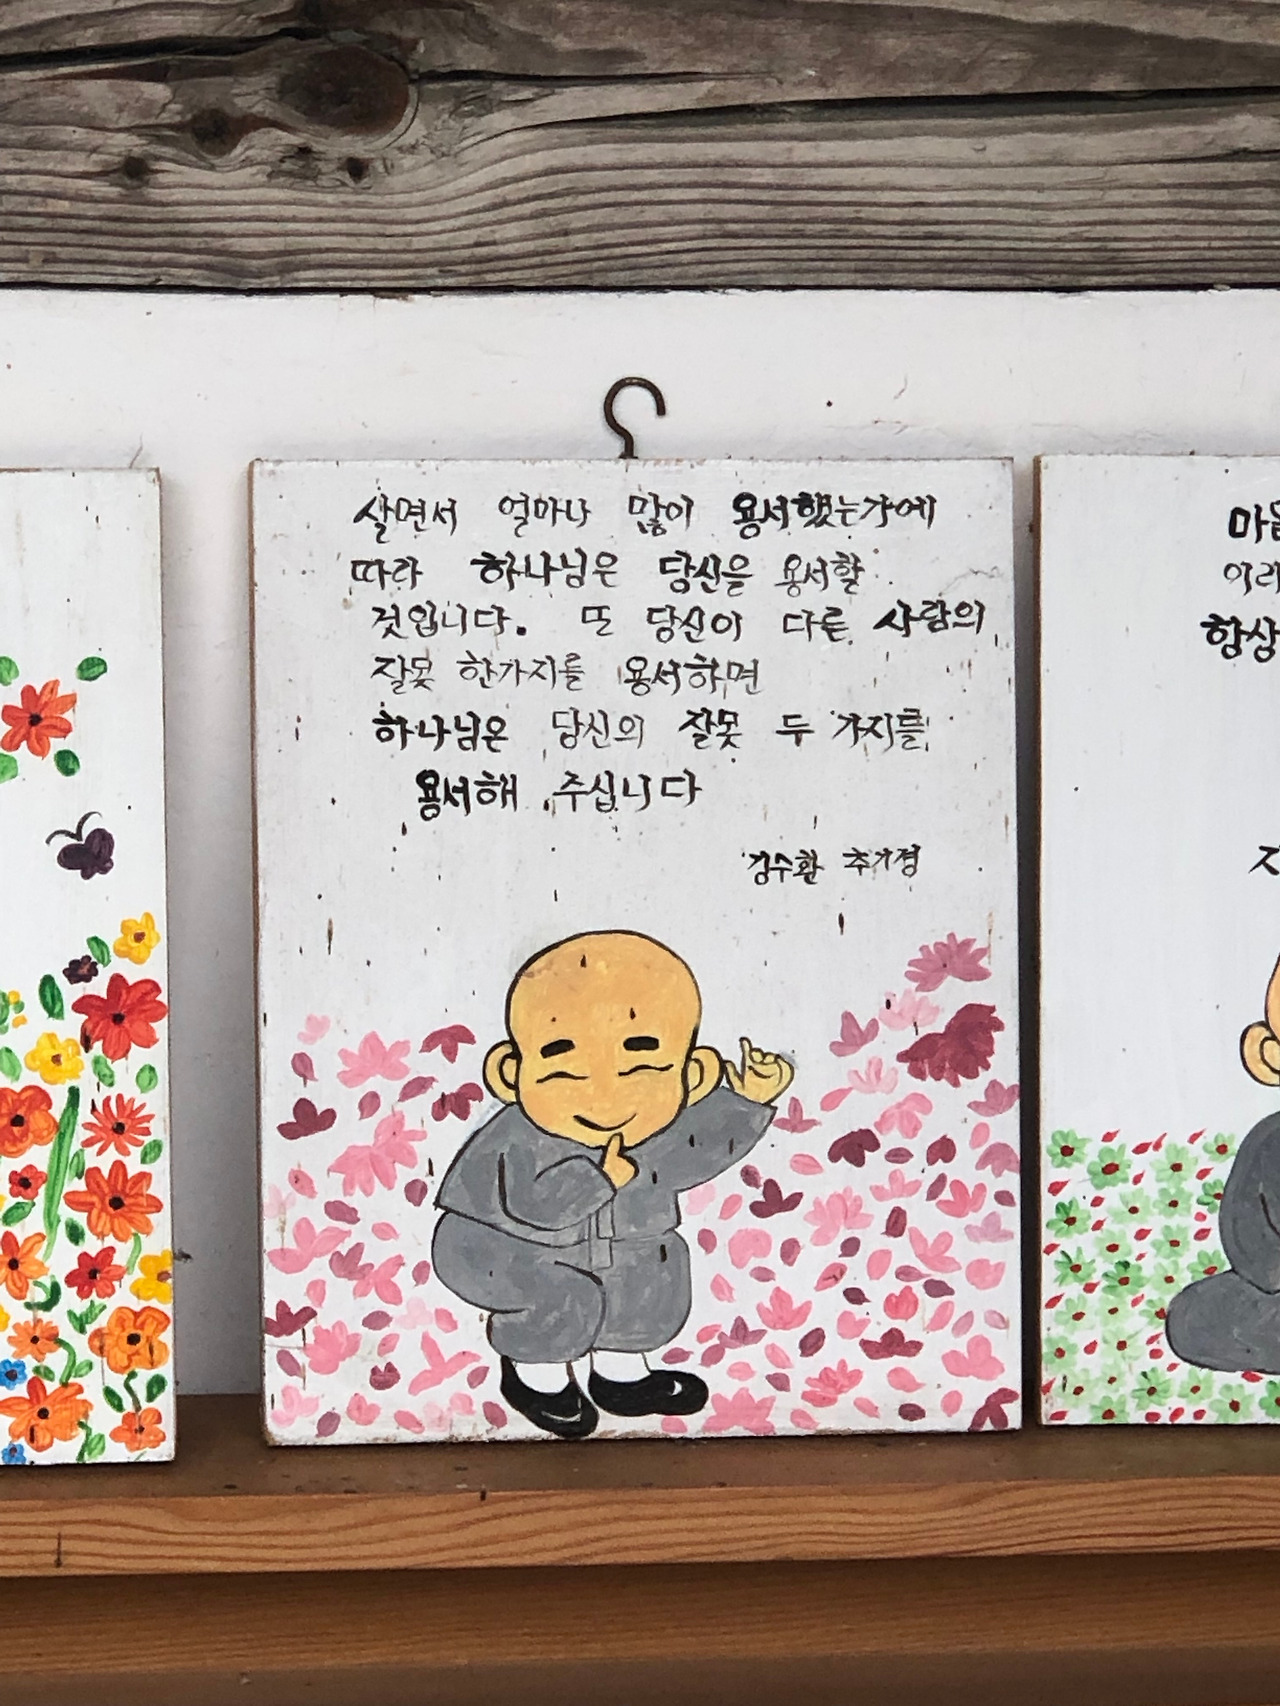 살면서 얼마나 많이 용서했는가에
따라 하나님은 당신을 용서할
것입니다. 또 당신이 다른 사람의
잘못 한가지를 용서하면
하나님은 당신의 잘못 두 가지를
용서해 주십니다
김수환 추기경
항상